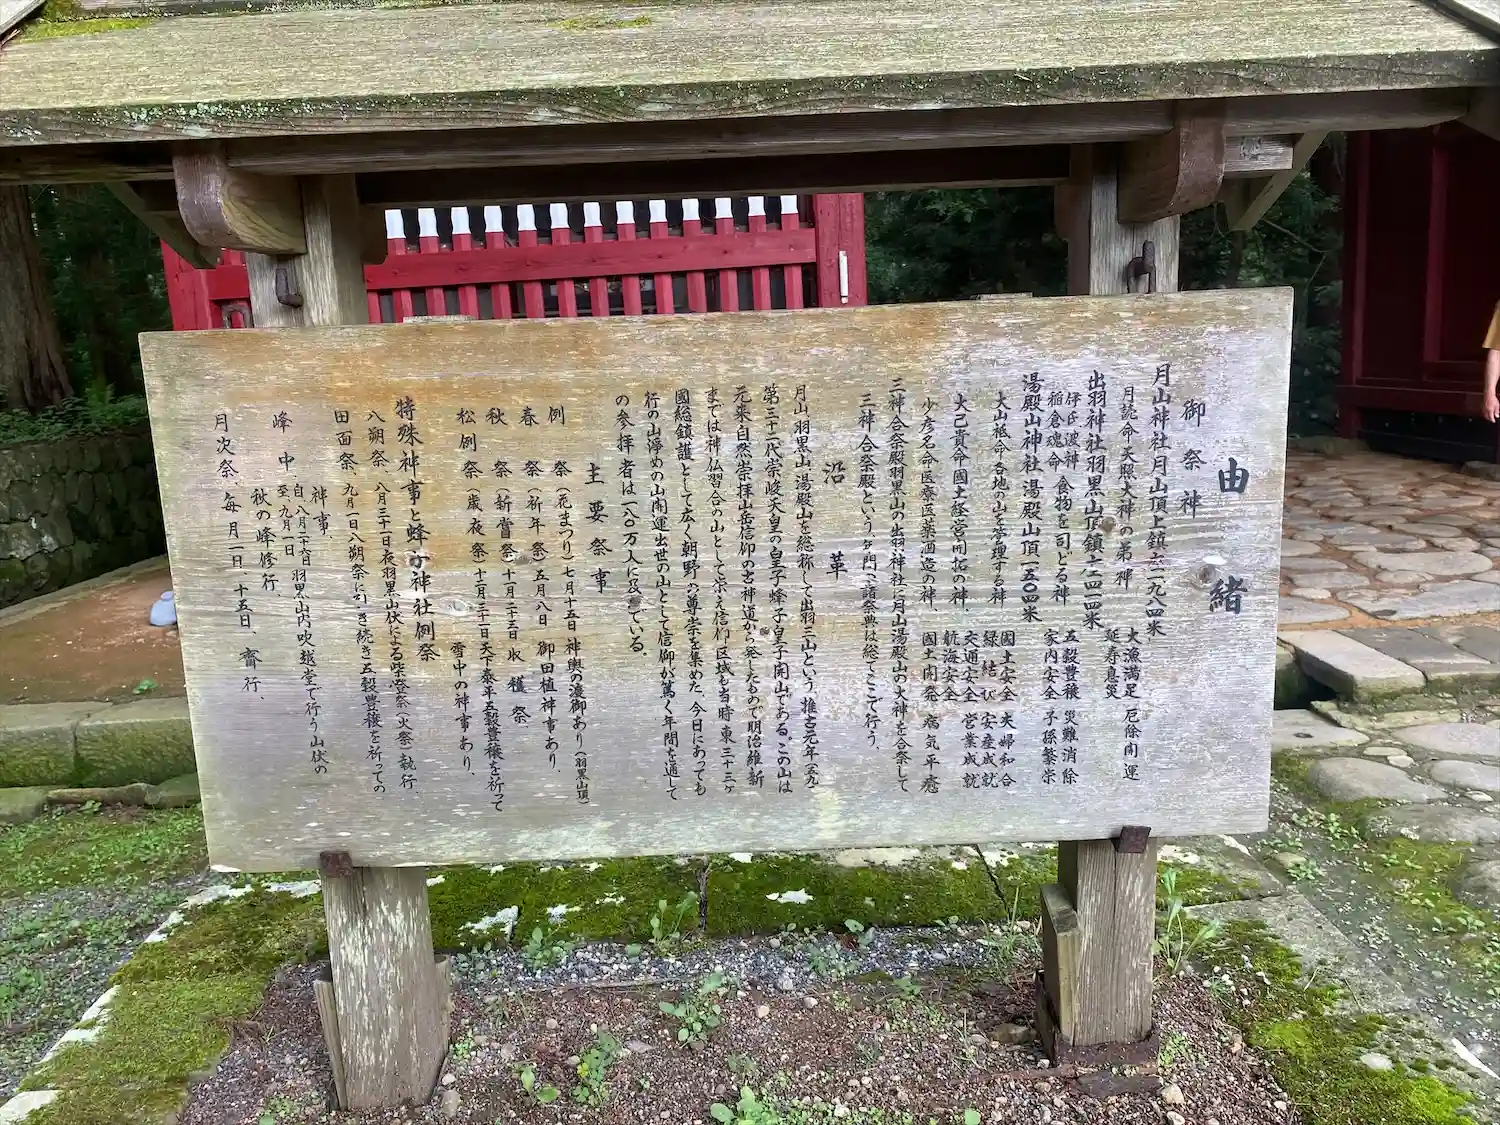 由緒
御祭神
月山神社月山頂上鎮座一九八四米
月読命天照大神の弟神
大漁満足 厄除開運
延寿息災
出羽神社羽黒山頂鎮座四一四米
伊氐波神
稲倉魂命 食物を司どる神
五穀豊穣 災難消除
家内安全 子孫繁栄
湯殿山神社湯殿山頂一五〇四米
大山祗命各地の山を管理する神
國土安全 夫婦和合
縁結び 安産成就
大己貴命國土経営開拓の神
交通安全 営業成就
航海安全
少彦名命医療医薬酒造の神
國土開発 病気平癒
三神合祭殿羽黒山の出羽神社に月山湯殿山の大神を合祭して
三神合祭殿という年間、諸祭典は総てここで行う、
沿革
月山羽黒山湯殿山を総称して出羽三山という、推古元年(五九
第三十二代崇峻天皇の皇子蜂子皇子開山である。この山は
元来自然崇拝山岳信仰の古神道から発したもので明治維新
までは神仏習合の山として栄え信仰区域も当時東三十三ヶ
國総鎮護として広く朝野の尊崇を集めた、今日にあっても
行の山浄めの山開運出世の山として信仰が篤く年間を通して
の参拝者は一八〇万人に及でいる。
主要祭事
例祭(花まつり)七月十五日 神輿の渡御あり(羽黒山頂)
春祭(祈年祭)五月八日 御田植神事あり.
秋祭(新嘗祭)十一月二十三日 収穫祭.
松例祭(歳夜祭)十二月三十一日天下泰平五穀豊穣を祈って
雪中の神事あり.
特殊神事と蜂子神社例祭
八朔祭、八月三十一日夜羽黒山伏による柴燈祭(火祭)執行
田面祭、九月一日八朔祭に引き続き五穀豊穣を祈っての
神事
峰中 自八月二十六日 至九月一日 羽黒山内吹越堂で行う山伏の
秋の峰修行.
月次祭 毎月一日、十五日、齋行.